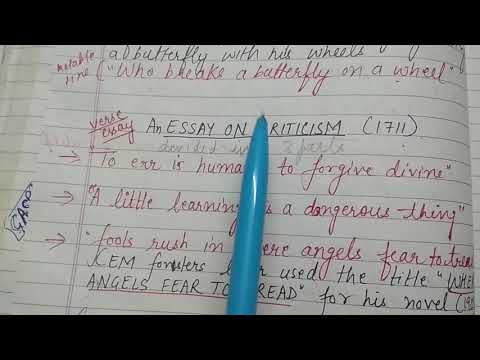 a butterfly with his wheels
notable line ("Who breaks a butterfly on a wheel"
verse essay An ESSAY ON CRITICISM (1711)
divided in 3 parts
→ "To err is human to forgive divine"
→ "A little learning is a dangerous thing"
→ "fools rush in where angels fear to tread
EM forsters used the title "WHERE
ANGELS FEAR TO TREAD" for his novel